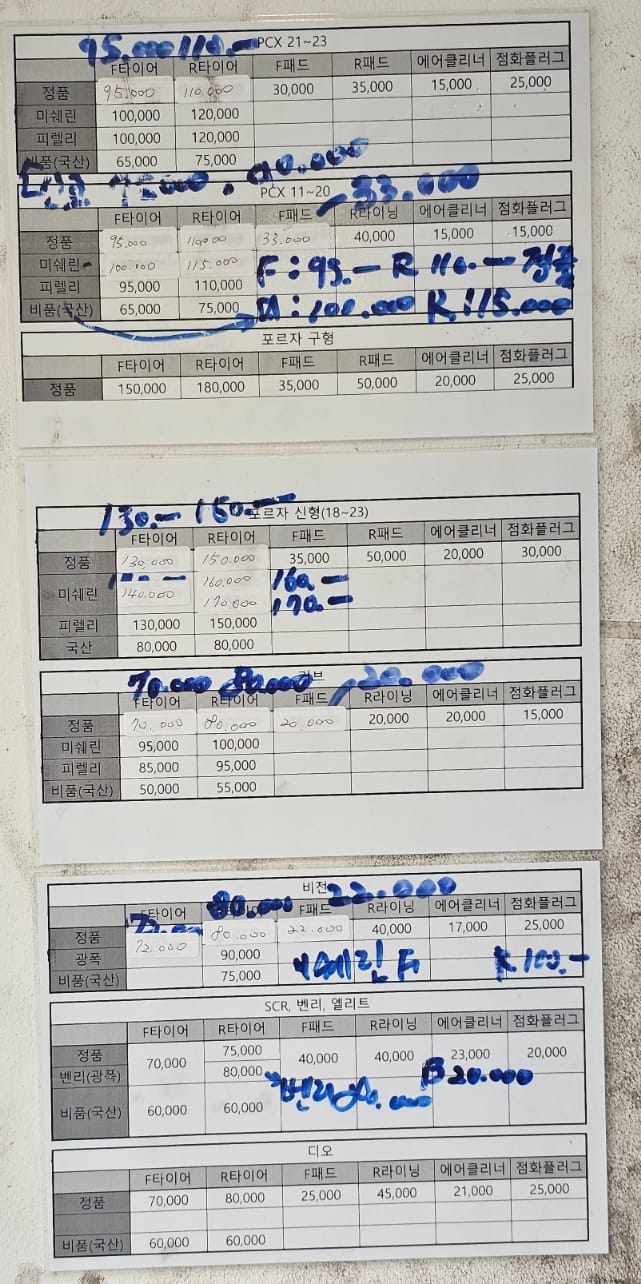 95.000 110.-
PCX 21~23
F타이어 R타이어 F패드 R패드 에어클리너 점화플러그
정품 95.000 110.000 30,000 35,000 15,000 25,000
미쉐린 100,000 120,000
피렐리 100,000 120,000
비품(국산) 65,000 75,000
90.000
PCX 11~20
33.000
F타이어 R타이어 F패드 R라이닝 에어클리너 점화플러그
정품 95.000 110.000 33.000 40,000 15,000 15,000
미쉐린 100.000 115.000
F:95.- R 110.- 정품
피렐리 95,000 110,000
비품(국산) 65,000 75,000
미:100.000 R:115.000
포르자 구형
F타이어 R타이어 F패드 R패드 에어클리너 점화플러그
정품 150,000 180,000 35,000 50,000 20,000 25,000
130.- 150.-
포르자 신형(18~23)
F타이어 R타이어 F패드 R패드 에어클리너 점화플러그
정품 130,000 150.000 35,000 50,000 20,000 30,000
160.000 160-
미쉐린 140.000
170.000 170.-
피렐리 130,000 150,000
국산 80,000 80,000
70.000 80.000 20.000
F타이어 R타이어 F패드 R라이닝 에어클리너 점화플러그
정품 70.000 80.000 20,000 20,000 20,000 15,000
미쉐린 95,000 100,000
피렐리 85,000 95,000
비품(국산) 50,000 55,000
비전
80.000 22.000
F타이어 R타이어 F패드 R라이닝 에어클리너 점화플러그
정품 72.000 80.000 22.000 40,000 17,000 25,000
광폭 90,000
비품(국산) 75,000
R 100.-
SCR, 벤리, 엘리트
F타이어 R타이어 F패드 R라이닝 에어클리너 점화플러그
정품 70,000 75,000 40,000 40,000 23,000 20,000
벤리(광폭) 80,000
B20.000
벤리
비품(국산) 60,000 60,000
디오
F타이어 R타이어 F패드 R라이닝 에어클리너 점화플러그
정품 70,000 80,000 25,000 45,000 21,000 25,000
비품(국산) 60,000 60,000